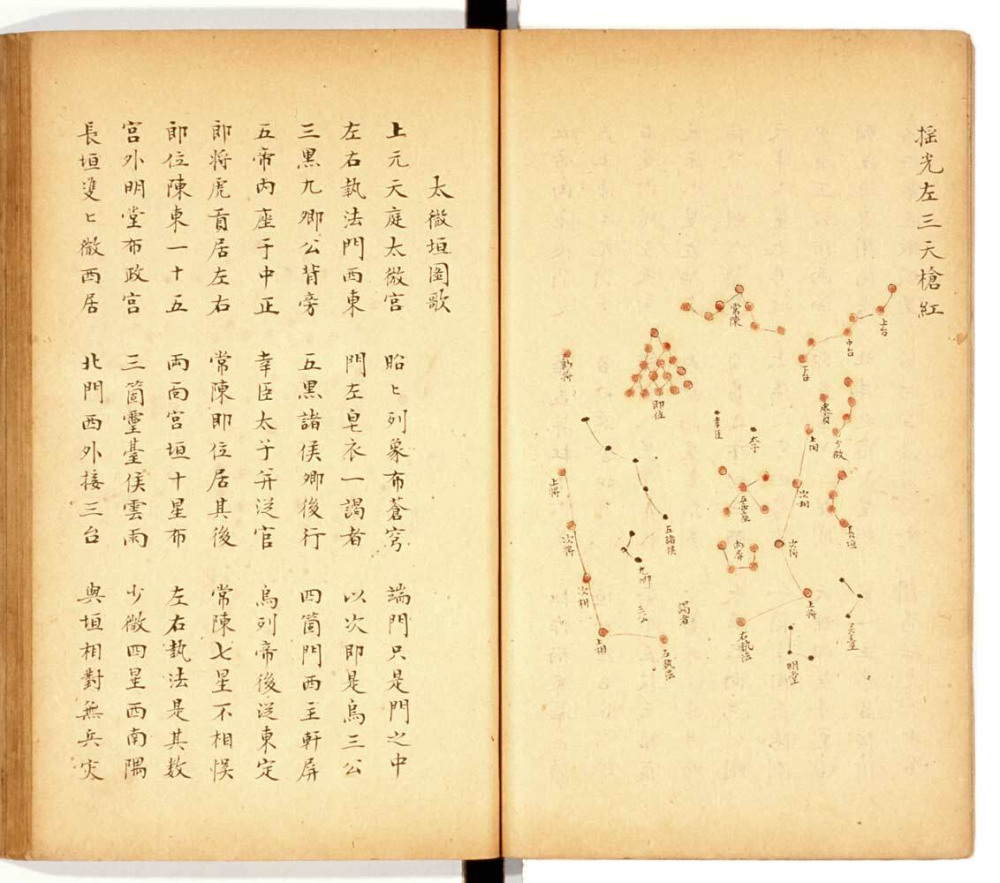 揺光左三天槍紅
上台
中台
下台
常陳
郎將
郎位
虎賁
少微
幸臣
太子
上相
次相
長垣
上將
五帝座
次將
內屏
次將
五諸侯
九卿
次相
三公
謁者
上將
上相
右執法
明堂
太微垣圖歌
上元天庭太微宮 昭〻列象布蒼穹 端門只是門之中
左右執法門西東 門左皂衣一謁者 以次即是烏三公
三黑九卿公背旁 五黑諸侯卿後行 四箇門西主軒屏
五帝內座于中正 幸臣太子并從官 烏列帝後從東定
郎將虎賁居左右 常陳郎位居其後 常陳七星不相悞
郎位陳東一十五 兩面宮垣十星布 左右執法是其数
宮外明堂布政宮 三箇靈臺侯雲雨 少微四星西南隅
長垣雙〻微西居 北門西外接三台 與垣相對無兵灾